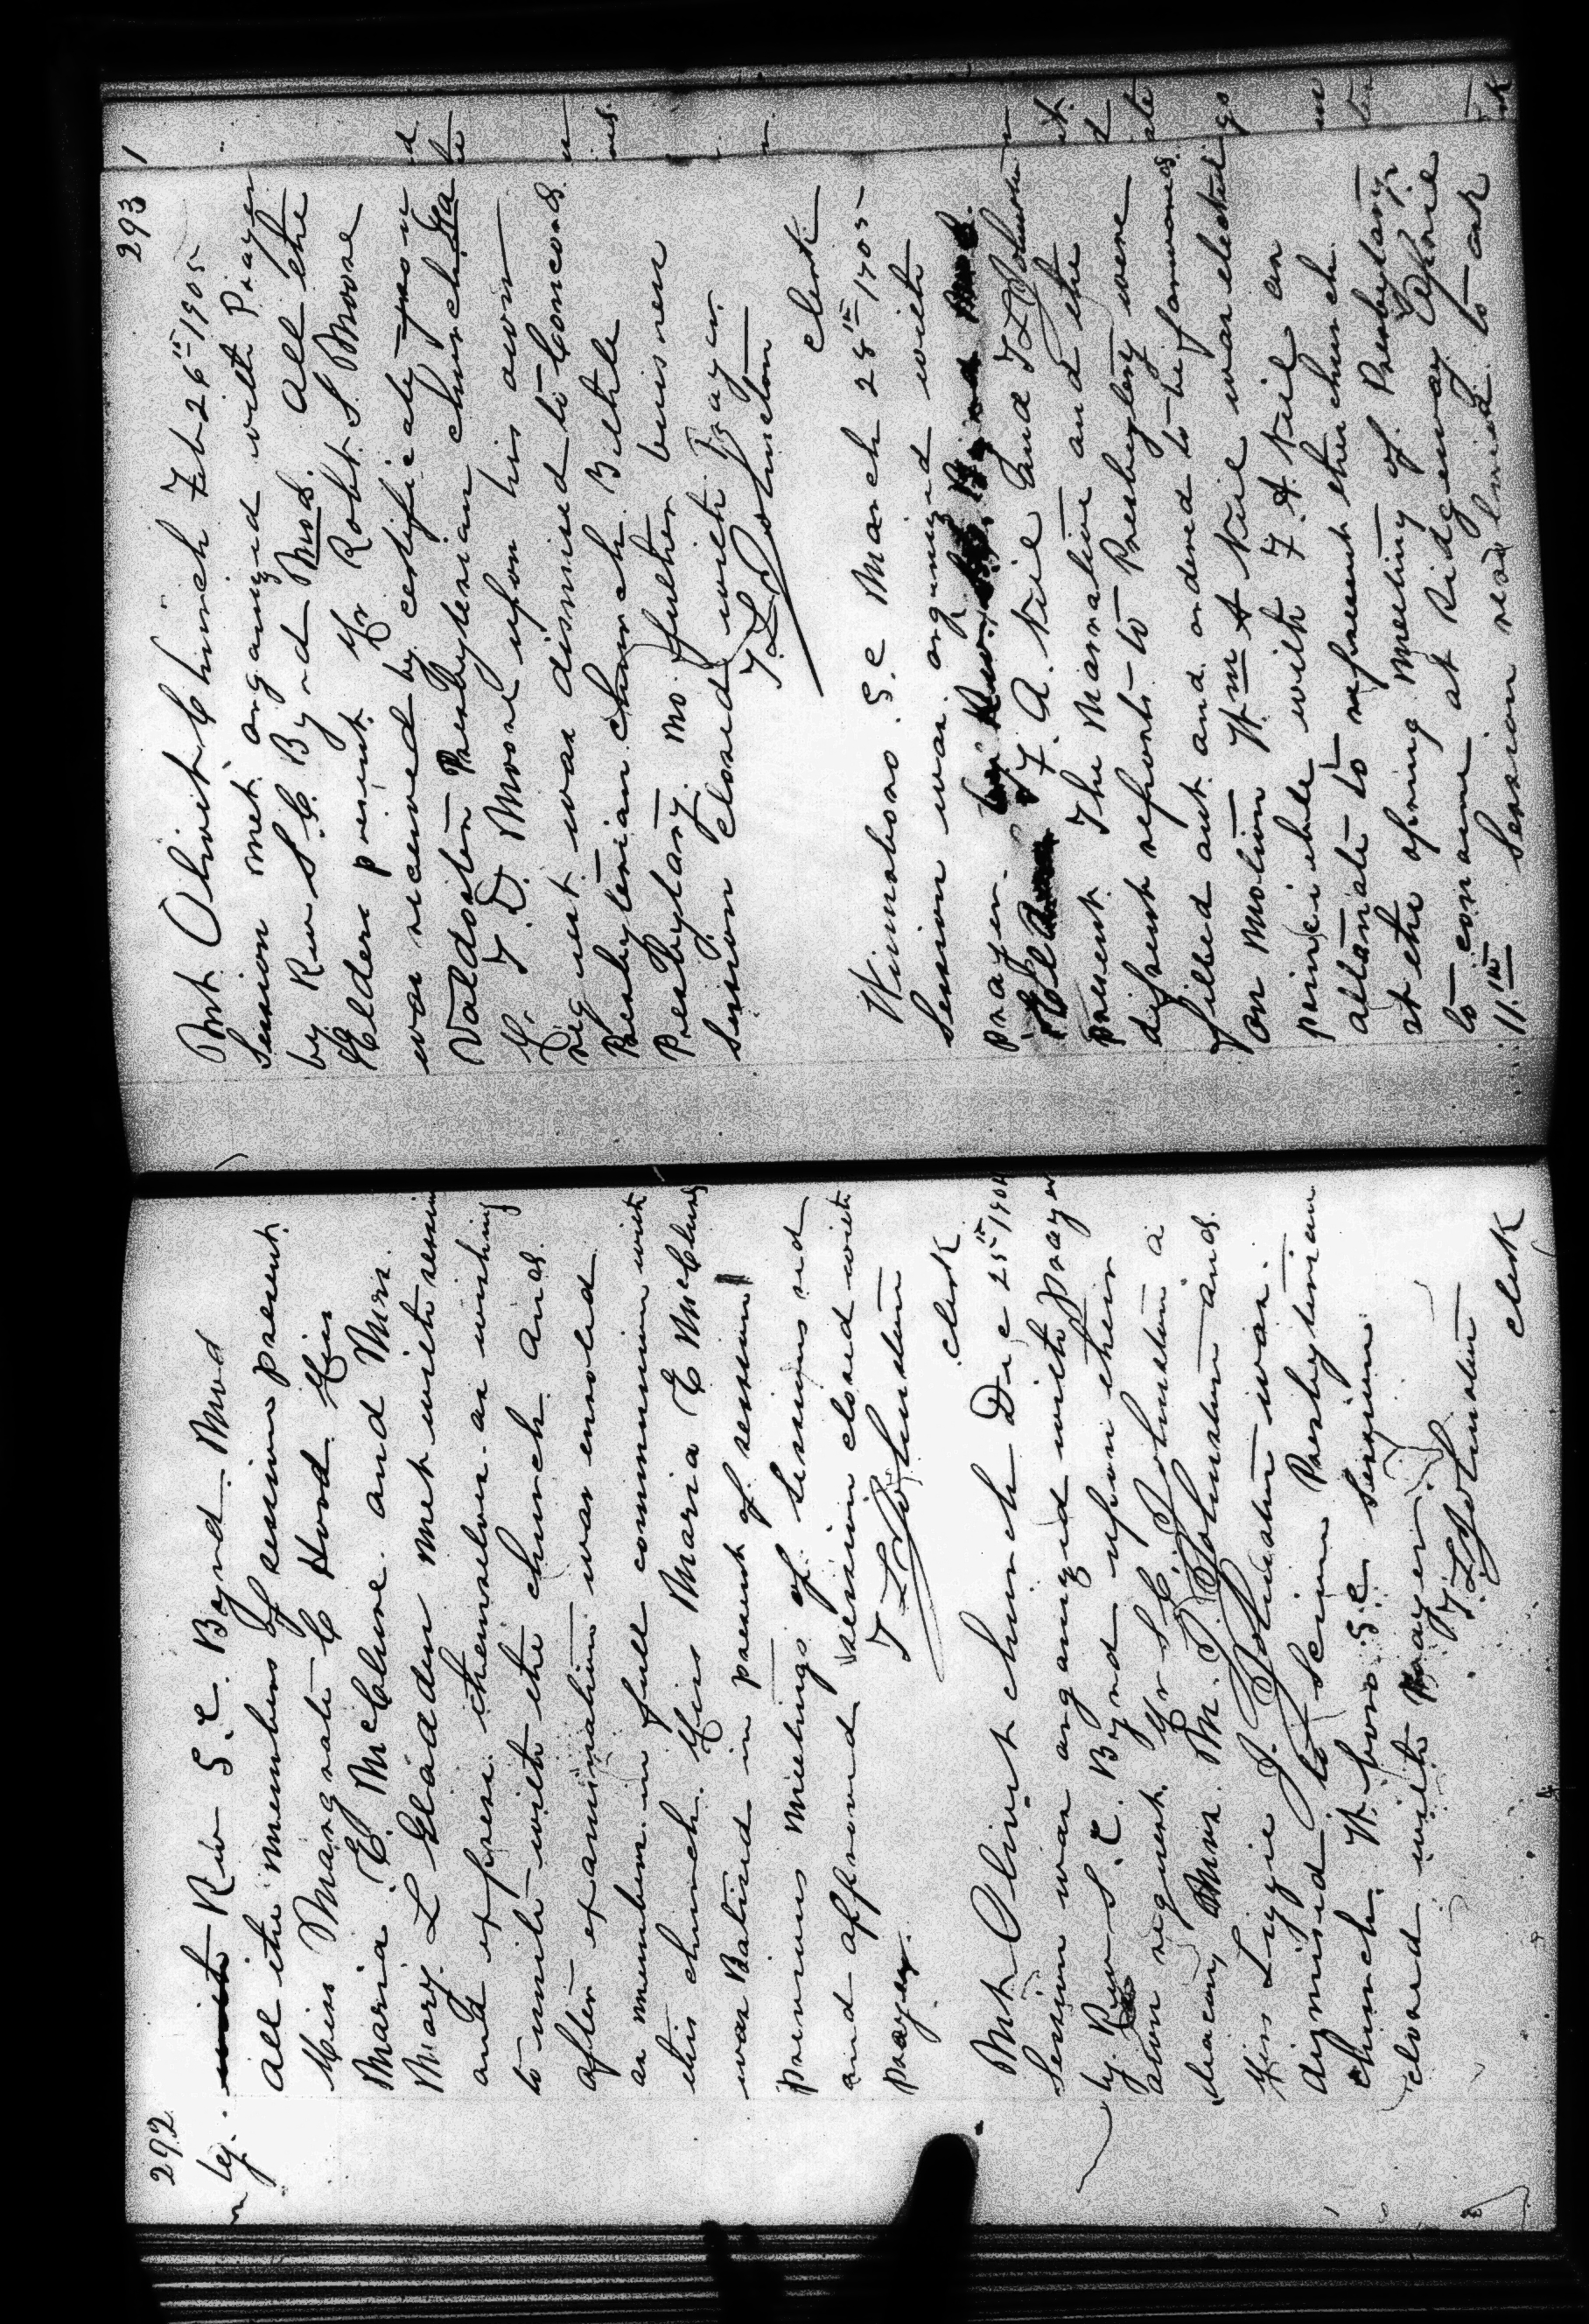 292
by. with Rev S. C. Byrd. Mod
all the members of session present.
Miss Margrate C Hood. Miss
Maria E. McClure and Mrs.
Mary L Gladden met with session
and express themselves as wishing
to unite with the church and.
after examination was enroled
as members in full communion with
this church. Miss Maria E McClure
was Batised in present of session
previous meetings of sessions red
and approved. session closed with
prayer. T L Johnston
clerk
Mt Olivet church Dec 25th 1904
Session was organized with prayer
by. Rev S. C. Byrd upon their
own request. Mr S. C. Johnston a
deacon, Mrs. M. J. Johnston and.
Miss Lizzie J. Johnston was.
dismised to Scion Presbyterian
church. W.boro. S.C. Session
closed with Prayer.
T. L. Johnston
clerk
293
Mt Olivet Church Feb 26th 1905
Session met organized with Prayer
by Rev S. C. Byrd Mod. All the
Elders present. Mr Robt. S. Moore
was received by certificate from
Valdosta Presbyterian church Ga
T. D. Moore upon his own
request was dismised to Concord.
Presbyterian church Bethle
Presbytary. no further buisness
Session closed with Prayer.
T. L. Johnston
clerk
Winnsboro. S.C March 28th 1905
Session was organized with
prayer.
F. A. Neil and T L Johnston
present. The Narrative and the
difrent reports to Presbytery were
filled out and ordered to be forwarded.
on motion Wm A Neil was elected
principle with F. A. Neil an
alternate to represent the church
at the spring meeting of Presbytary.
to convene at Ridgeway Aprile
11th Session resolved to ask